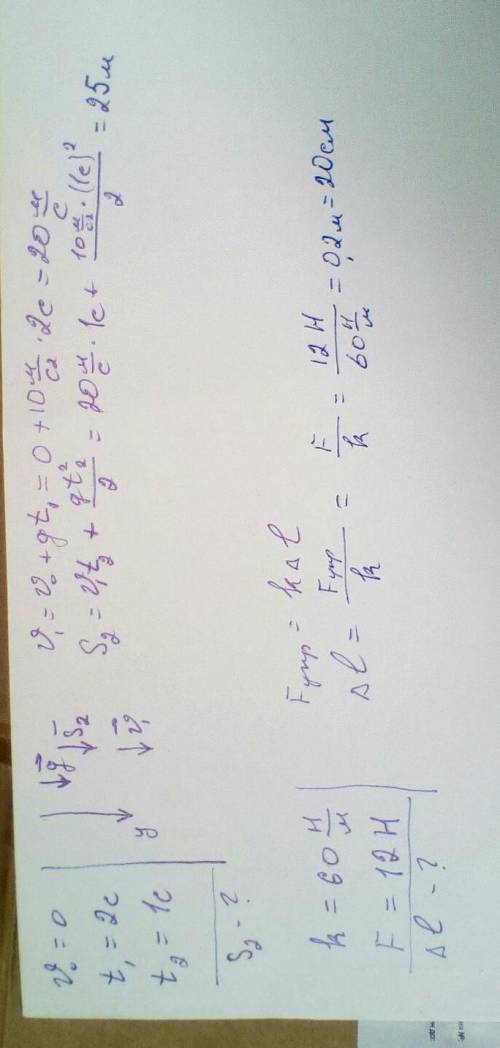 v₀ = 0
t₁ = 2с
t₂ = 1с
S₂ - ?
g
S₂
v₁
y
v₁ = v₀ + gt₁ = 0 + 10 м/с² · 2с = 20 м/с
S₂ = v₁t₂ + gt₂²/2 = 20 м/с · 1с + 10 м/с² · (1с)²/2 = 25 м
k = 60 Н/м
F = 12 Н
Δl - ?
Fупр = kΔl
Δl = Fупр/k = F/k = 12 Н/60 Н/м = 0,2 м = 20 см